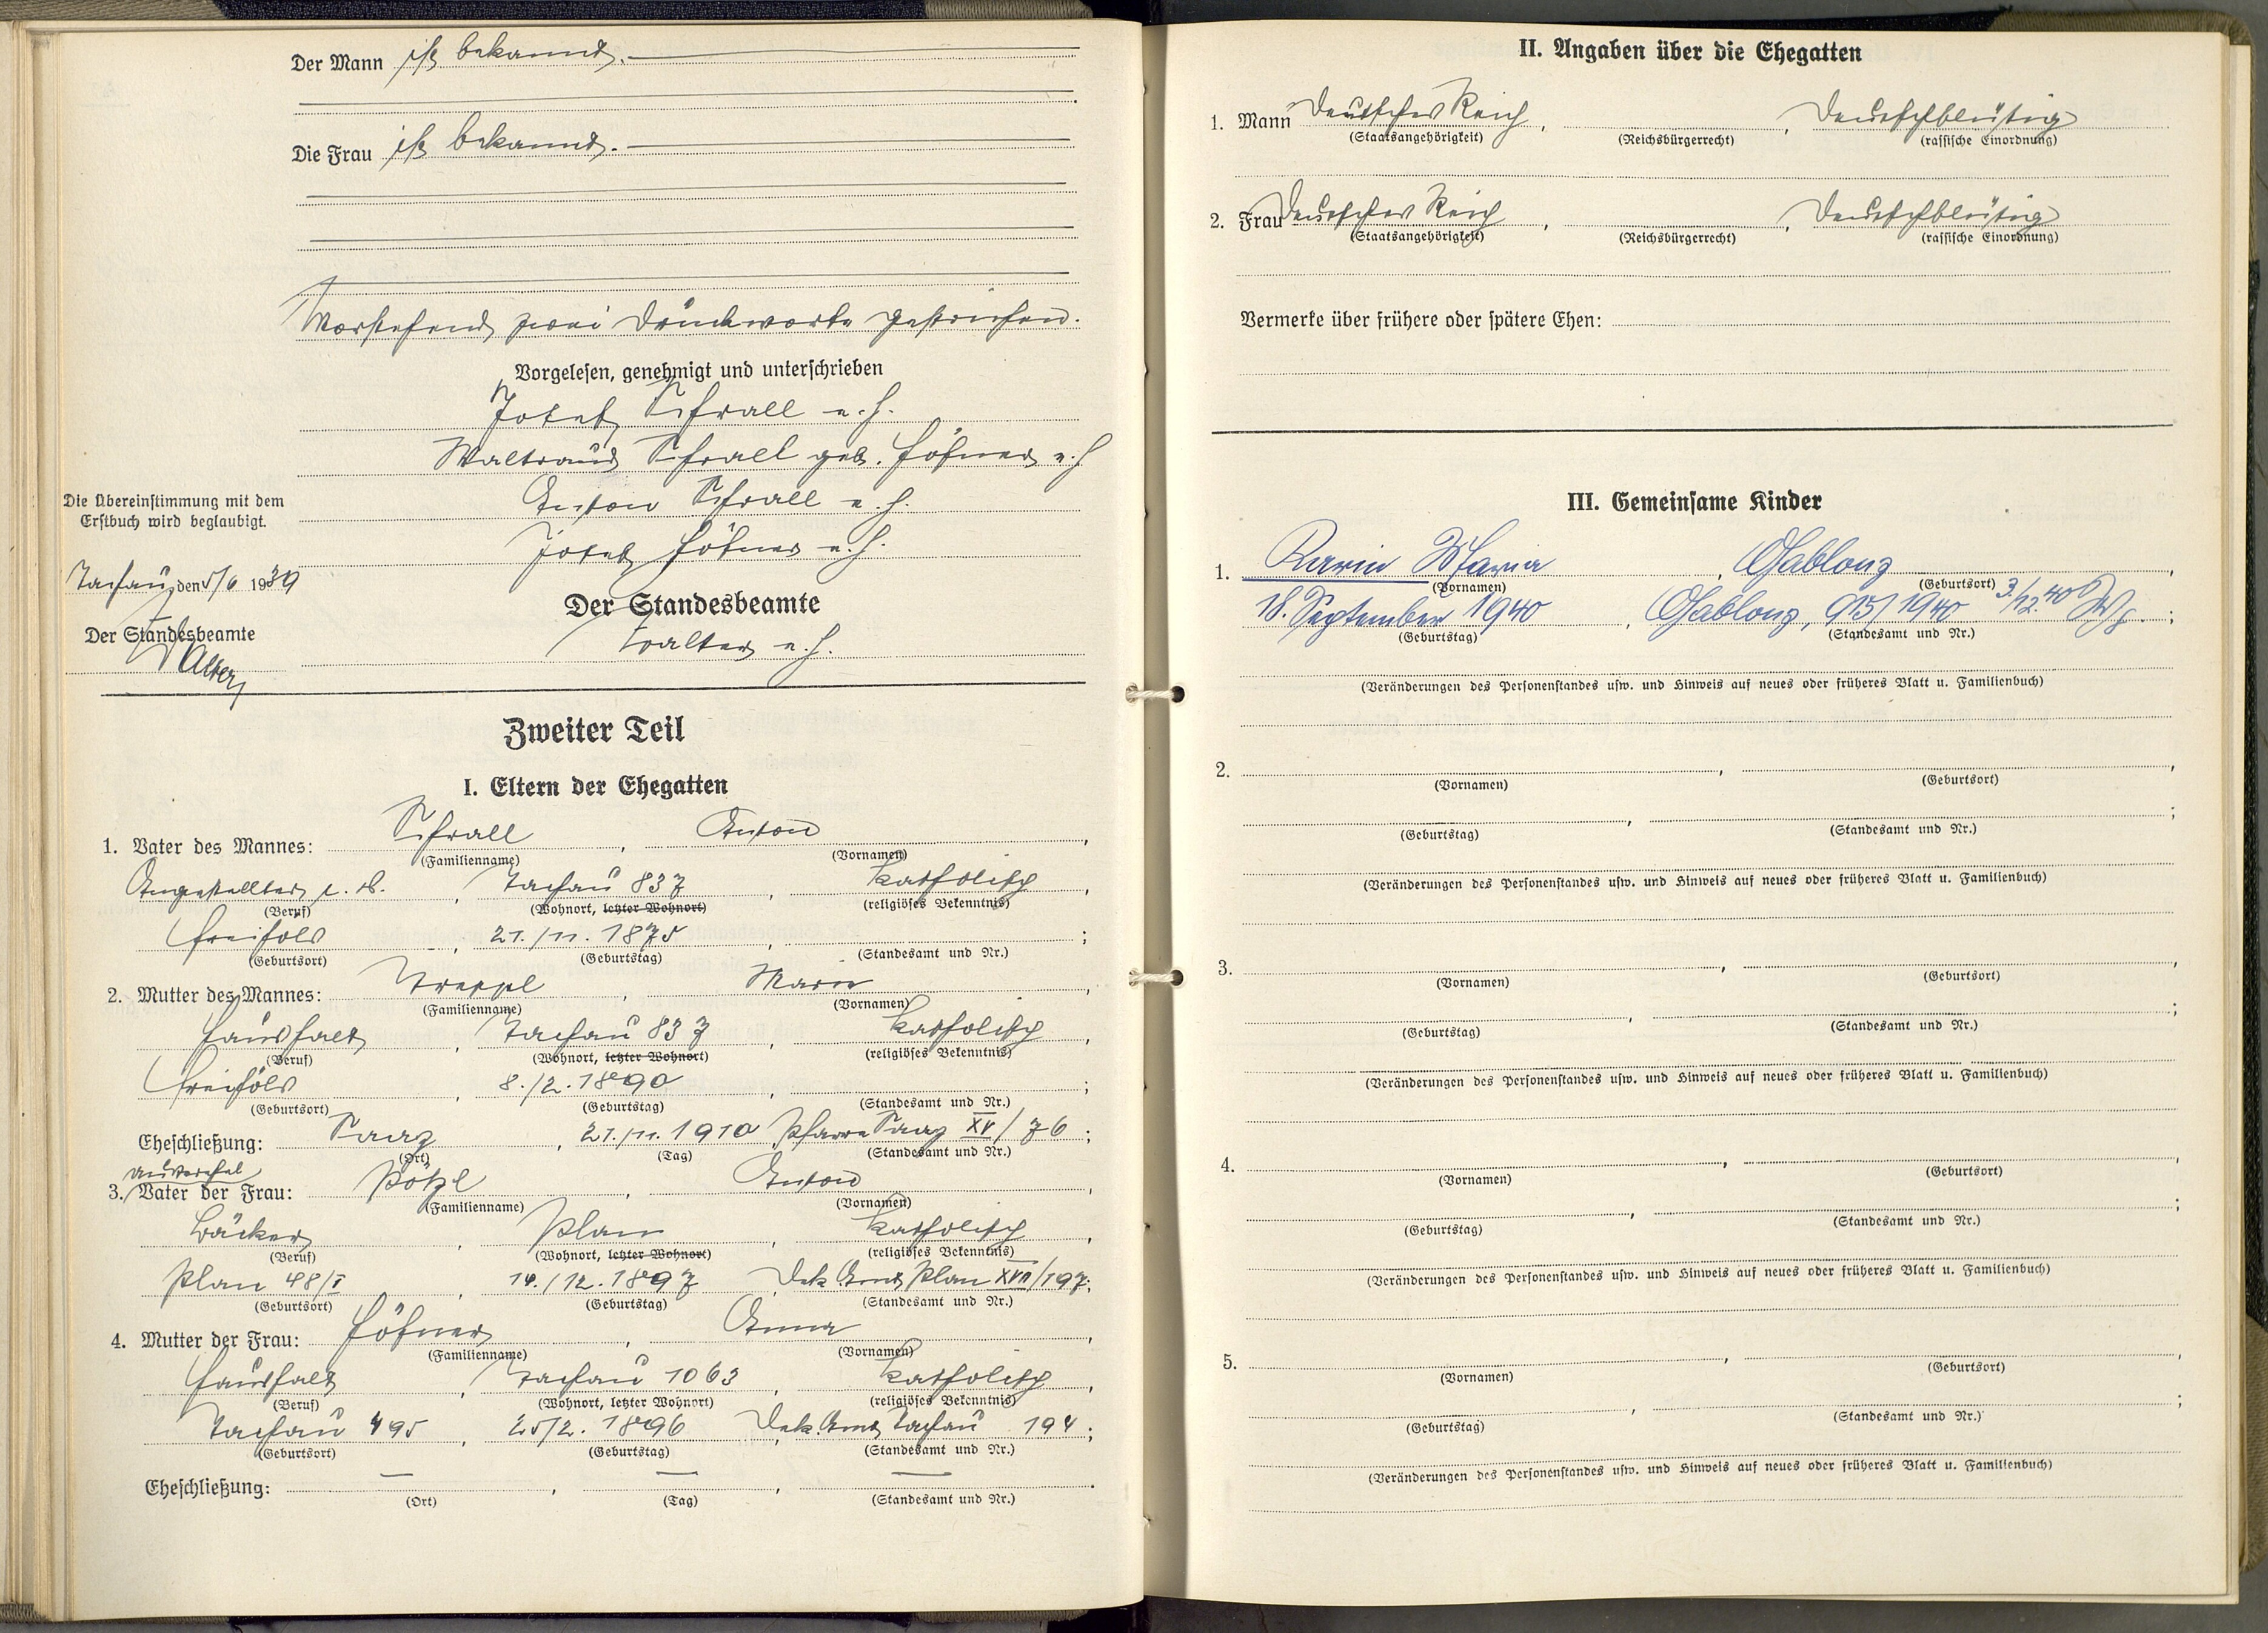 Der Mann ist bekannt.
Die Frau ist bekannt.
Vorstehend zwei Druckworte gestrichen.
Vorgelesen, genehmigt und unterschrieben
Josef Schrall e. h.
Waltraud Schrall geb. Höfner e. h.
Anton Schrall e. h.
Josef Höfner e. h.
Die Übereinstimmung mit dem
Erstbuch wird beglaubigt.
Tachau, den 5/6 1939
Der Standesbeamte
Walter
Der Standesbeamte
Walter e. h.
Zweiter Teil
I. Eltern der Ehegatten
1. Vater des Mannes: Schrall, Anton,
(Familienname) (Vornamen)
Angestellter i. R., Tachau 837, katholisch,
(Beruf) (Wohnort, letzter Wohnort) (religiöses Bekenntnis)
21./11. 1875, ;
(Geburtsort) (Geburtstag) (Standesamt und Nr.)
2. Mutter des Mannes: Treppl, Marie,
(Familienname) (Vornamen)
Haushalt, Tachau 837, katholisch,
(Beruf) (Wohnort, letzter Wohnort) (religiöses Bekenntnis)
8./2. 1890, ;
(Geburtsort) (Geburtstag) (Standesamt und Nr.)
Eheschließung: Saaz, 21./11. 1910, Pfarre Saaz XV/76;
(Ort) (Tag) (Standesamt und Nr.)
3. Vater der Frau: Pötzl, Anton,
(Familienname) (Vornamen)
Bäcker, Plan, katholisch,
(Beruf) (Wohnort, letzter Wohnort) (religiöses Bekenntnis)
Plan 48/I, 14./12. 1897, Dek. Amt Plan XVII/197;
(Geburtsort) (Geburtstag) (Standesamt und Nr.)
4. Mutter der Frau: Höfner, Anna,
(Familienname) (Vornamen)
Haushalt, Tachau 1063, katholisch,
(Beruf) (Wohnort, letzter Wohnort) (religiöses Bekenntnis)
Tachau 495, 25/2. 1896, Dek. Amt Tachau 194;
(Geburtsort) (Geburtstag) (Standesamt und Nr.)
Eheschließung: —, —, —.
(Ort) (Tag) (Standesamt und Nr.)
II. Angaben über die Ehegatten
1. Mann Deutsches Reich, , Deutschblütig
(Staatsangehörigkeit) (Reichsbürgerrecht) (rassische Einordnung)
2. Frau Deutsches Reich, , Deutschblütig
(Staatsangehörigkeit) (Reichsbürgerrecht) (rassische Einordnung)
Vermerke über frühere oder spätere Ehen:
III. Gemeinsame Kinder
1. Karin Maria, Gablonz,
(Vornamen) (Geburtsort)
18. September 1940, Gablonz, 915/1940 3/12.40;
(Geburtstag) (Standesamt und Nr.)
(Veränderungen des Personenstandes usw. und Hinweis auf neues oder früheres Blatt u. Familienbuch)
2. , ,
(Vornamen) (Geburtsort)
, ;
(Geburtstag) (Standesamt und Nr.)
(Veränderungen des Personenstandes usw. und Hinweis auf neues oder früheres Blatt u. Familienbuch)
3. , ,
(Vornamen) (Geburtsort)
, ;
(Geburtstag) (Standesamt und Nr.)
(Veränderungen des Personenstandes usw. und Hinweis auf neues oder früheres Blatt u. Familienbuch)
4. , ,
(Vornamen) (Geburtsort)
, ;
(Geburtstag) (Standesamt und Nr.)
(Veränderungen des Personenstandes usw. und Hinweis auf neues oder früheres Blatt u. Familienbuch)
5. , ,
(Vornamen) (Geburtsort)
, ;
(Geburtstag) (Standesamt und Nr.)
(Veränderungen des Personenstandes usw. und Hinweis auf neues oder früheres Blatt u. Familienbuch)